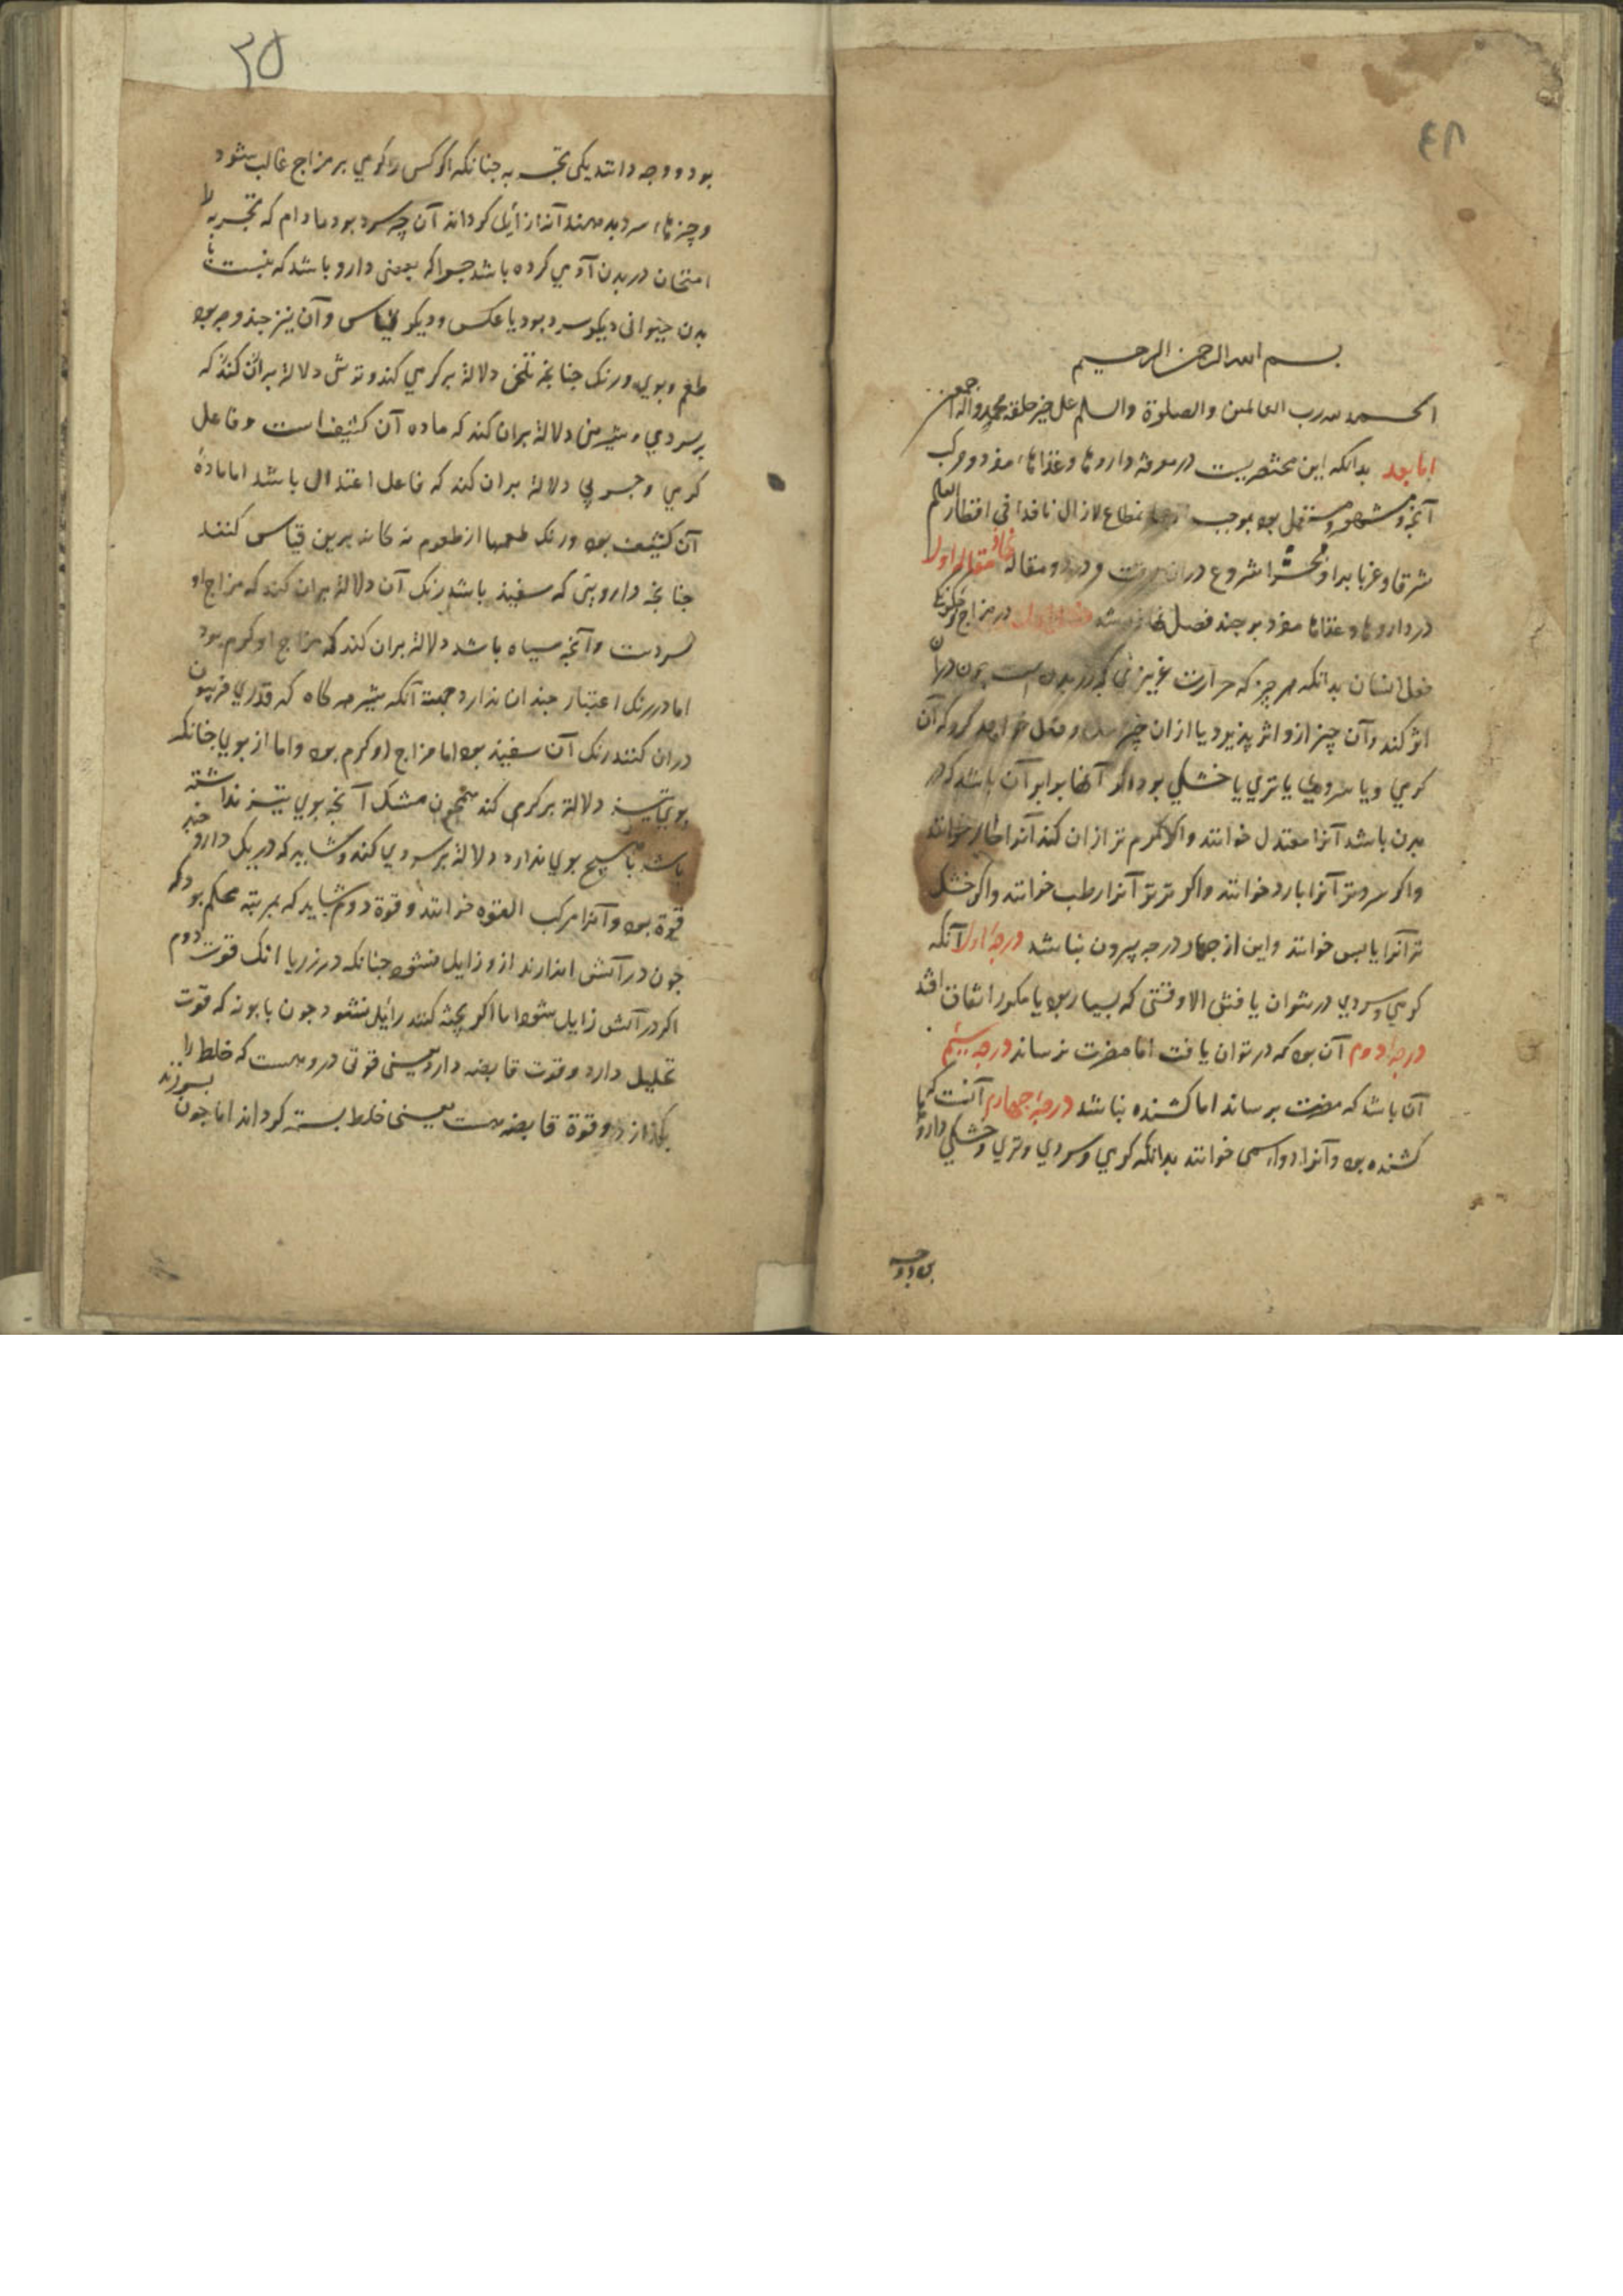 ٤٨
بسم الله الرحمن الرحيم
الحمد لله رب العالمين والصلوة والسلم على خير خلقه محمد واله اجمعين
اما بعد بدانکه این مختصریست در معرفة داروها وغذاها، مفرد ومرکب
آنچه مشهور ومستعمل بود بموجب لازال نافذا فی اقطار العالم
شرقا وغربا شروع دران در دو مقاله مقاله اول
در داروها وغذاها مفرد بر چند فصل در مزاج
فعل ایشان بدانکه هر چیز که حرارت غریزی که در بدن است چون دران
اثر کند وآن چیز ازو اثر پذیرد یا ازان چیز که آن
کرمی ویا سردی یا تری یا خشکی بود اکر آنها برابر آن باشد که در
بدن باشد آنرا معتدل خوانند والا کرم تر ازان کند آنرا حار خوانند
واکر سردتر آنرا بارد خوانند واکر تر تر آنرا رطب خوانند واکر خشک
تر آنرا یابس خوانند واین از چهار درجه بیرون نباشد درجه اول آنکه
کرمی وسردی در نتوان یافتن الا وقتی که بسیار بود یا مکرر اتفاق افتد
درجه دوم آن بود که در توان یافت اما مضرت نرساند درجه سیم
آن باشد که مضرت برساند اما کشنده نباشد درجه چهارم آنست که
کشنده بود وآنرا دواء سمی خوانند بدانکه کرمی وسردی وتری وخشکی دارو
بود دو وجه
٣٥
بود دو وجه دانند یکی تجربه چنانکه اکر کسی را کرمی بر مزاج غالب شود
وچیزهاء سرد بدهند آنرا زایل کرداند آن چه سرد بود مادام که تجربه را
امتحان در بدن آدمی کرده باشد چرا که بعضی دارو باشد که نسبت با
بدن حیوانی دیکر سرد بود یا عکس ودیکر قیاس وآن نیز چند وجه بود
طعم وبوی ورنک چنانچه تلخی دلالة بر کرمی کند وترشی دلالة بران کند که
بر سردی وشیرینی دلالة بران کند که ماده آن کثیف است وفاعل
کرمی وچربی دلالة بران کند که فاعل اعتدال باشد اما مادهٔ
آن کثیف بود ورنک طعمها از طعوم نه کانه برین قیاس کنند
چنانچه دارویی که سفید باشد رنک آن دلالة بران کند که مزاج او
سردست وآنچه سیاه باشد دلالة بران کند که مزاج او کرم بود
اما در رنک اعتبار چندان ندارد جهة آنکه شیر هر کاه که قدری فرپیون
دران کنند رنک آن سفید بود اما مزاج او کرم بود واما از بوی چنانکه
بوی تیز دلالة بر کرمی کند همچون مشک آنچه بوی تیز نداشته
باشد یا هیچ بوی ندارد دلالة بر سردی کند وشاید که در یک دارو چند
قوة بود وآنرا مرکب القوه خوانند وقوة دوم شاید که بمرتبه محکم بود که
چون در آتش اندازند ازو زایل نشود چنانکه در زر یا انک قوت دوم
اکر در آتش زایل شود اما اکر پخته کنند زایل نشود چون بابونه که قوت
تحلیل دارد وقوت قابضه دارد یعنی قوتی دروهست که خلط را
بکدازد وقوة قابضه هست یعنی خلط بسته کرداند اما چون بسوزند